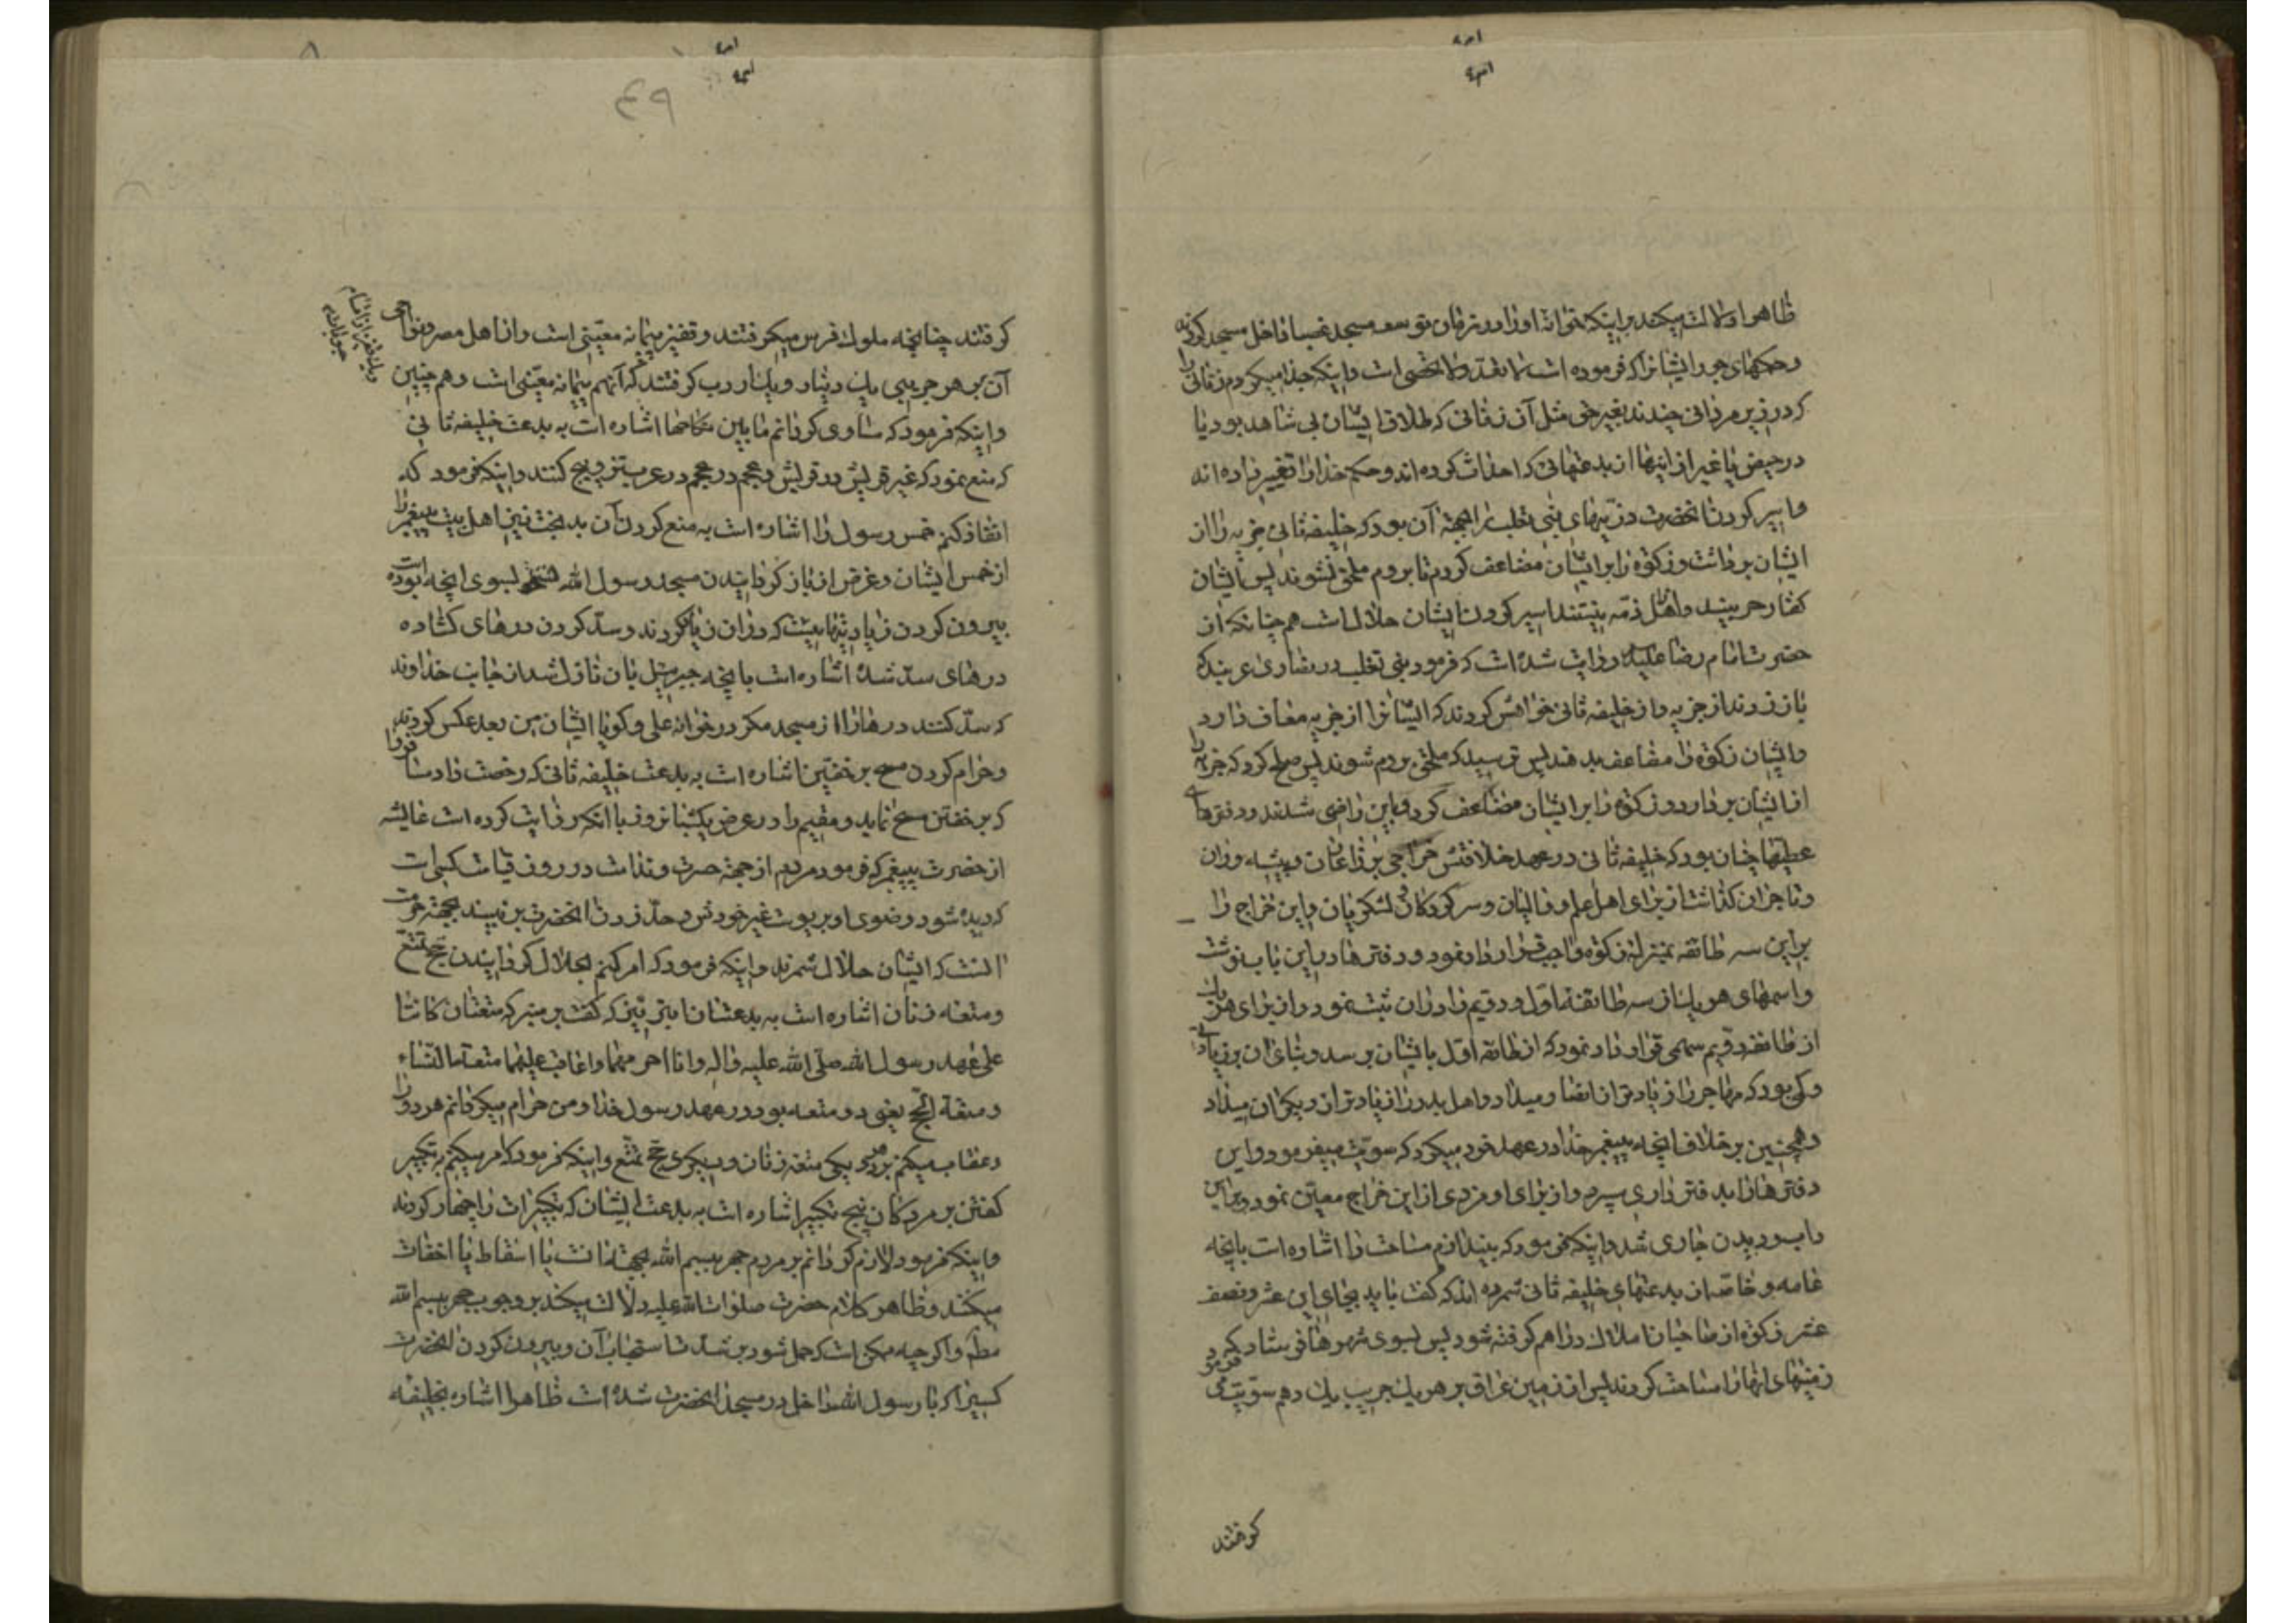 ظاهرا دلالت میکند بر اینکه خوانه اورا در زمان توسعه مسجد غصبا داخل مسجد کردند
و حکمهای جور ایشانرا که فرموده است و اینکه جدا میکردم زنانی را
که در زیر مردانی چندند بغیر حق مثل آن زنانی که طلاق ایشان بی شاهد بود یا
در حیض یا غیر از اینها از بدعتهائی که احداث کرده اند و حکم خدا را تغییر داده اند
و اسیر کردن انحضرت ذریهای بنی تغلب را بجهة آن بود که خلیفه ثانی جزیه را از
ایشان برداشت و زکوة را بر ایشان مضاعف کردم تا بروم ملحق نشوند پس ایشان
کفار حربیند و اهل ذمه نیستند اسیر کردن ایشان حلال است هم چنانکه از
حضرت امام رضا علیه روایت شده است که فرمود بنی تغلب در نصاری عربند که
باز زدند از جزیه و از خلیفه ثانی خواهش کردند که ایشانرا از جزیه معاف دارد
و ایشان زکوة را مضاعف بدهند پس ترسید که ملحق بروم شوند پس صلح کرد که جزیه را
از ایشان بردارد و زکوة را بر ایشان مضاعف کرد و باین راضی شدند و دفترهای
عطیها چنان بود که خلیفه ثانی در عهد خلافتش خراجی بر زارعان و پیشه وران
و تاجران گذاشت از برای اهل علم و والیان و سر کردکان و لشکریان و این خراج را
بر این سه طائفه بمنزلۀ زکوة واجب قرار داد نمود و دفترها در این باب نوشت
و اسمهای هر یک از سه طائفه اول و دویم را در ان ثبت نمود و از برای هر یک
از طائفه دویم سهمی قرار داد نمود که از طائفه اول بایشان برسد و بنای ان بر زیادتی
و کمی بود که مهاجر را زیادتر از انصار میداد و اهل بدر را زیادتر از دیکران میداد
و همچنین بر خلاف آنچه پیغمبر خدا در عهد خود میکرد که سویت میفرمود و این
دفترها را بدفتر داری سپرد و از برای او مزدی از این خراج معین نمود و بر این
داب و دیدن جاری شد و اینکه فرمود که بیندازم مساحت را اشاره است بآنچه
عامه و خاصه از بدعتهای خلیفه ثانی شمرده اند که گفت باید بجای این عشر و نصف
عشر زکوة از صاحبان املاک دراهم کرفته شود پس بسوی شهرها فرستاد که
زمینهای انها را مساحت کردند پس از زمین عراق بر هر یک جریب یک درهم
کرفتند
۴۹
کرفتند چنانچه ملوک فرس میکرفتند و قفیز پیمانه معینی است و از اهل مصر و نواحی
آن بر هر جریبی یک دینار و یک اردب کرفتند که آنهم پیمانه معینی است و هم چنین
و اینکه فرمود که مساوی کردانم مابین نکاحها اشاره است به بدعت خلیفه ثانی
که منع نمود که غیر قریش در قریش و عجم در عجم در عرب تزویج کنند و اینکه فرمود که
انفاذ کنم خمس رسول را اشاره است به منع کردن آن اهل بیت پیغمبر را
از خمس ایشان و غرض از باز کردانیدن مسجد رسول الله بسوی انچه بوده است
بیرون کردن زیادتیهائیست که در ان زیاد کردند و سد کردن درهای کشاده
درهای سد شده اشاره است بانچه جبرئیل بان نازل شد از جانب خداوند
که سد کنند درها را از مسجد مکر در خوانه علی و کویا ایشان من بعد عکس کردند
و حرام کردن مسح بر خفین اشاره است به بدعت خلیفه ثانی که رخصت داد مسافر را
که بر خفتن مسح نماید و مقیم را در عرض یکشبانروز با انکه روایت کرده است عایشه
از حضرت پیغمبر که فرمود مردم از جهة حسرت و ندامت در روز قیامت کسی است
که دیده شود وضوی او بر پوست غیر خودش و حد زدن انحضرت بر نبیذ بجهة حرمت
انست که ایشان حلال شمرند و اینکه فرمود که امر کنم بحلال کردانیدن حج تمتع
و متعه زنان اشاره است به بدعت که گفت بر منبر که متعتان کانتا
علی عهد رسول الله صلی الله علیه واله وانا احرمهما واعاقب علیهما متعة النساء
و متعة الحج یعنی دو متعه بود در عهد رسول خدا و من حرام میکردانم هر دو را
و عقاب میکنم بر هر دو یکی متعه زنان و دیکری حج تمتع و اینکه فرمود که امر میکنم به تکبیر
کفتن بر مردکان پنج تکبیر اشاره است به بدعت ایشان که تکبیرات را چهار کردند
و اینکه فرمود لازم کردانم بر مردم جهر ببسم الله بجهة انست یا اسقاط یا اخفات
میکنند و ظاهر کلام حضرت صلوات الله علیه دلالت میکند بر وجوب جهر ببسم الله
مطلقا و اکرچه ممکن است که حمل شود بر شدت استحباب آن و بیرون کردن انحضرت
کسیرا که با رسول الله داخل در مسجد انحضرت شده است ظاهرا اشاره بخلیفه